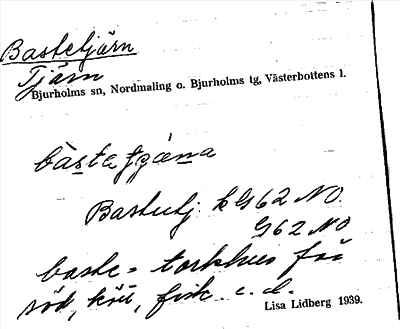 Bastetjärn
Tjärn
Bjurholms sn, Nordmaling o. Bjurholms tg, Västerbottens l.
bàstetjæ̀na
Bastetj. hG62 NO.
G62 NO
baste = torkhus för
säd, kött, fisk e. d.
Lisa Lidberg 1939.